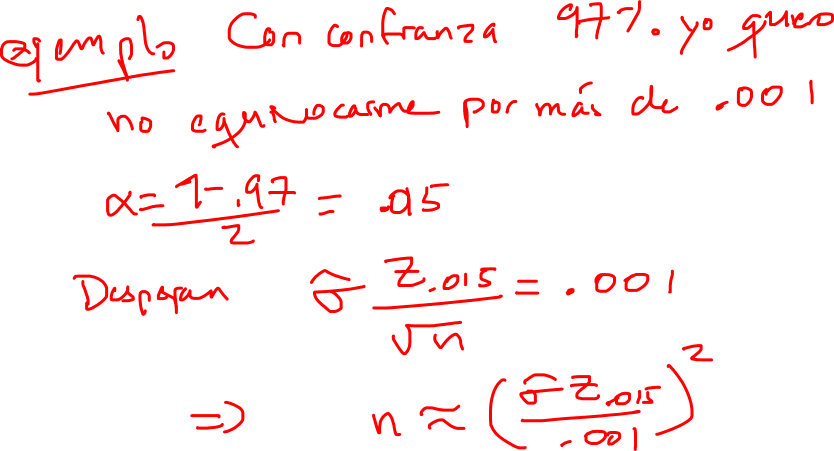 ejemplo Con confianza 97%. yo quiero
no equivocarme por más de .001
α = 1-.97 / 2 = .015
Despejan σ̂ Z.015 / √n = .001
⇒ n ≈ (σ̂ Z.015 / .001)²